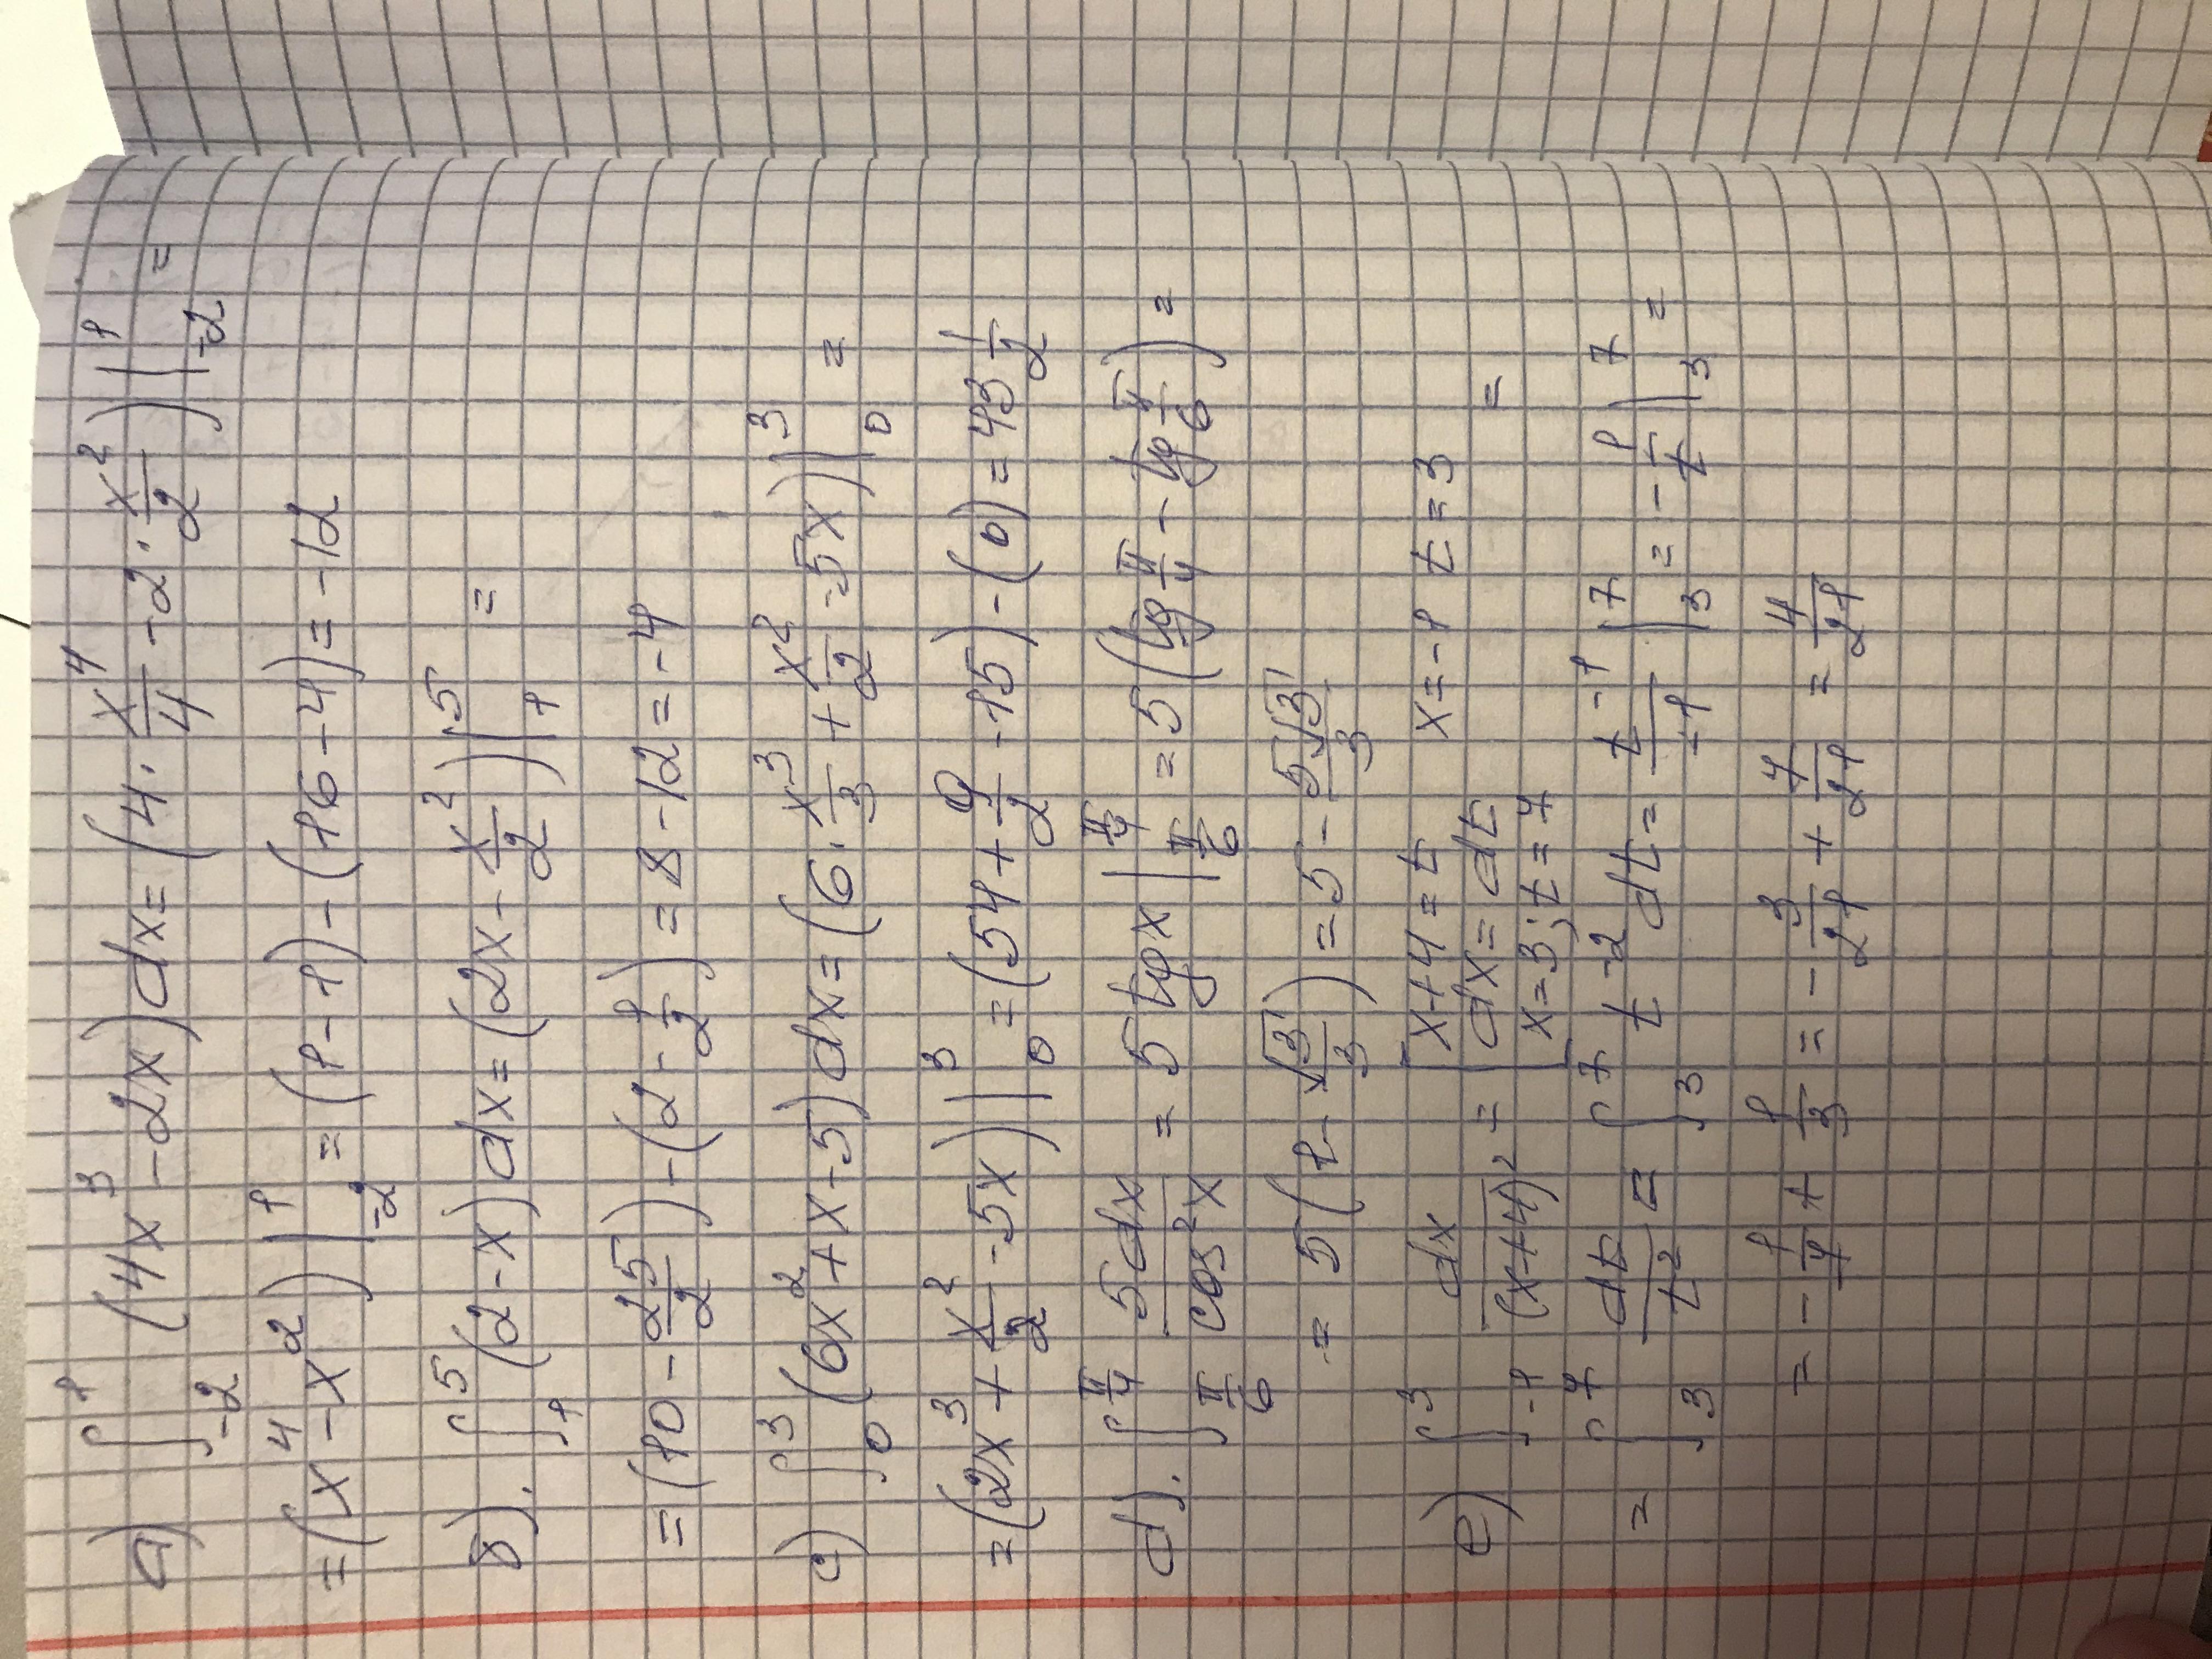 a) ∫₋₂¹ (4x³ -2x)dx = (4·x⁴/4 -2·x²/2)|₋₂¹ =
= (x⁴ - x²)|₋₂¹ = (1-1) - (16-4) = -12
b). ∫₁⁵ (2-x)dx = (2x - x²/2)|₁⁵ =
= (10 - 25/2) - (2 - 1/2) = 8 - 12 = -4
c) ∫₀³ (6x² + x - 5)dx = (6·x³/3 + x²/2 - 5x)|₀³ =
= (2x³ + x²/2 - 5x)|₀³ = (54 + 9/2 - 15) - (0) = 43 1/2
d). ∫_{π/6}^{π/4} 5dx/cos²x = 5 tg x |_{π/6}^{π/4} = 5(tg π/4 - tg π/6) =
= 5(1 - √3/3) = 5 - 5√3/3
e) ∫₋₁³ dx/(x+4)² = [x+4 = t x = -1 t = 3
dx = dt =
x = 3; t = 7
= ∫₃⁷ dt/t² = ∫₃⁷ t⁻² dt = t⁻¹/-1 |₃⁷ = -1/t |₃⁷ =
= -1/7 + 1/3 = -3/21 + 7/21 = 4/21